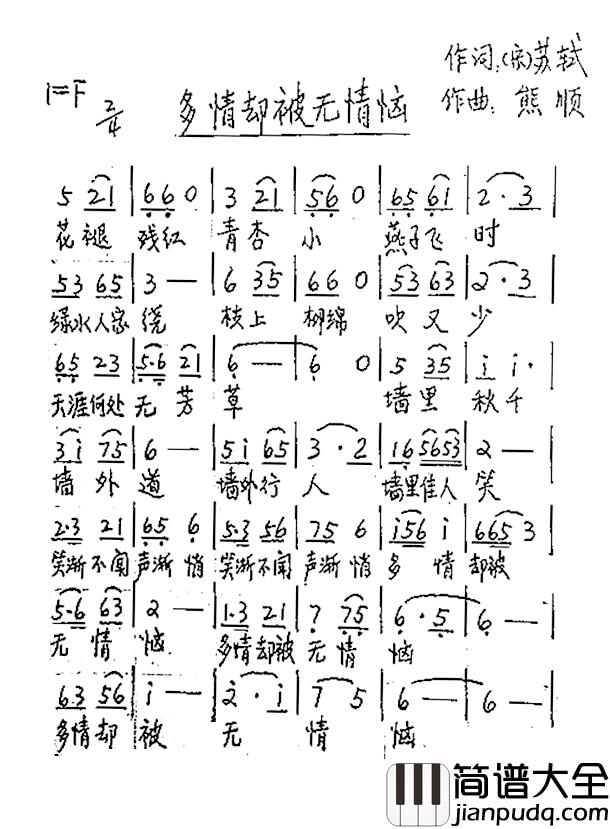 作词:(宋)苏轼
1=F 2/4 多情却被无情恼 作曲: 熊顺
5 21 | 660 | 3 21 | 56 0 | 65 61 | 2·3 |
花褪 残红 青杏 小 燕子飞 时
53 65 | 3 — | 6 35 | 66 0 | 53 63 | 2·3 |
绿水人家 绕 枝上 柳绵 吹又 少
65 23 | 5·6 21 | 6 — | 6 0 | 5 35 | i i· |
天涯何处 无芳 草 墙里 秋千
3i 75 | 6 — | 5i 65 | 3·2 | 16 5653 | 2 — |
墙外 道 墙外行 人 墙里佳人 笑
2·3 21 | 65 6 | 5·3 56 | 75 6 | i56 i | 665 3 |
笑渐不闻 声渐悄 笑渐不闻 声渐悄 多情 却被
5·6 63 | 2 — | 1·3 21 | 7 75 | 6·5 | 6 — |
无情 恼 多情却被 无情 恼
6·3 56 | i — | 2·i | 7 5 | 6 — | 6 — |
多情却 被 无 情 恼
简谱大全
jianpudq.com